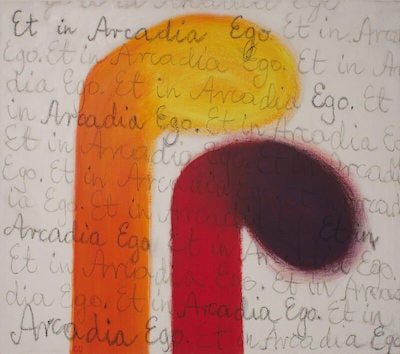 Et in Arcadia Ego.
Ego. Et in Arcadia Ego. Et in Ar
Ego. Et in Arcadia Ego. Et
in Arcadia Ego. Et in Arcadia
Et in Arcadia Ego. Et in Arcadia
Ego. Et in Arcadia Ego. Et in Arcad
ia Ego. Et in Arcadia Ego. Et in
Arcadia Ego. Et in Arcadia Et in
Et in Arcadia Ego. Et in Arcadia Ego.
dia Ego. Et in Arcadia Ego. Et in Arca
dia Ego. Et in Arcadia Ego. Et in
Arcadia Ego. Et in Arcadia Ego.